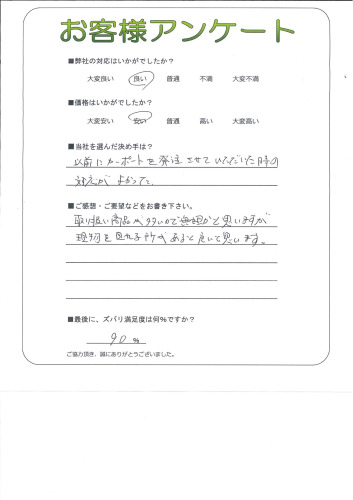 お客様アンケート
■弊社の対応はいかがでしたか？
大変良い 良い 普通 不満 大変不満
■価格はいかがでしたか？
大変安い 安い 普通 高い 大変高い
■当社を選んだ決め手は？
以前にカーポートを発注させていただいた時の
対応がよかった。
■ご感想・ご要望などをお書き下さい。
取り扱い商品が多いので無理かと思いますが
現物を見れる所があると良いと思います。
■最後に、ズバリ満足度は何％ですか？
90 ％
ご協力頂き、誠にありがとうございました。